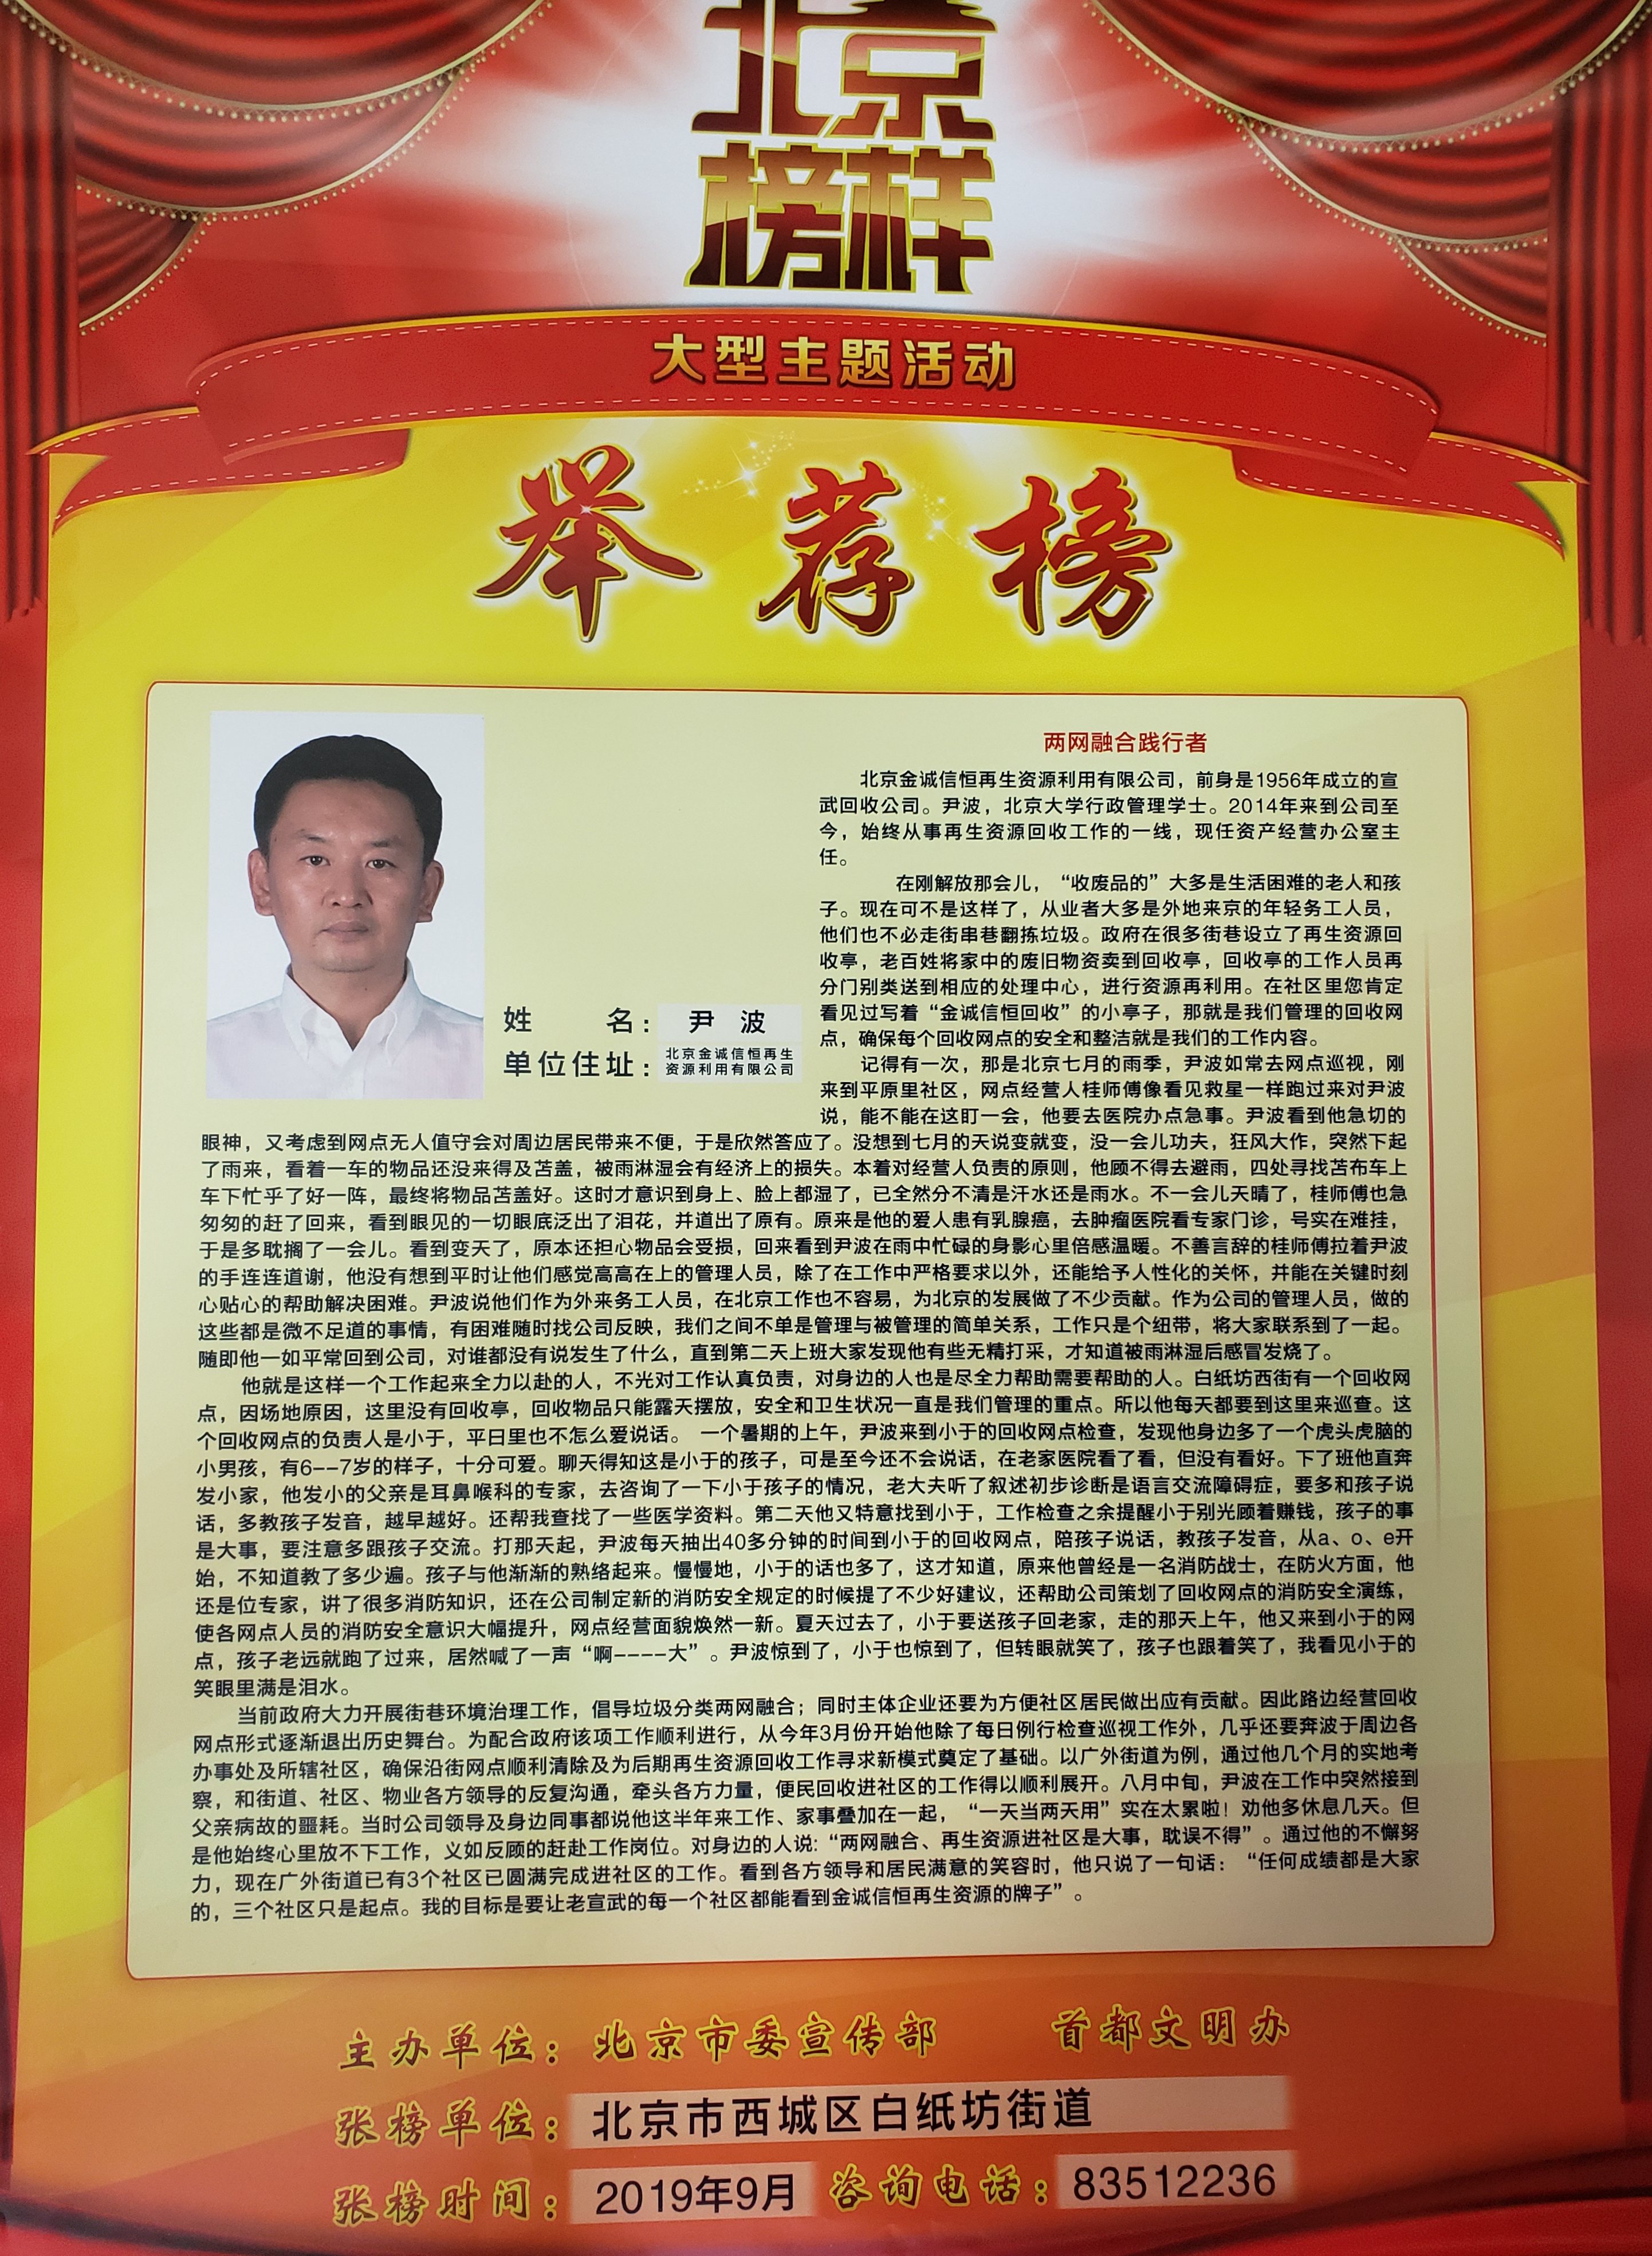 北京
榜样
大型主题活动
举荐榜
两网融合践行者
北京金诚信恒再生资源利用有限公司，前身是1956年成立的宣
武回收公司。尹波，北京大学行政管理学士。2014年来到公司至
今，始终从事再生资源回收工作的一线，现任资产经营办公室主
任。
在刚解放那会儿，“收废品的”大多是生活困难的老人和孩
子。现在可不是这样了，从业者大多是外地来京的年轻务工人员，
他们也不必走街串巷翻拣垃圾。政府在很多街巷设立了再生资源回
收亭，老百姓将家中的废旧物资卖到回收亭，回收亭的工作人员再
分门别类送到相应的处理中心，进行资源再利用。在社区里您肯定
看见过写着“金诚信恒回收”的小亭子，那就是我们管理的回收网
点，确保每个回收网点的安全和整洁就是我们的工作内容。
姓名：尹波
单位住址：北京金诚信恒再生
资源利用有限公司
记得有一次，那是北京七月的雨季，尹波如常去网点巡视，刚
来到平原里社区，网点经营人桂师傅像看见救星一样跑过来对尹波
说，能不能在这盯一会，他要去医院办点急事。尹波看到他急切的
眼神，又考虑到网点无人值守会对周边居民带来不便，于是欣然答应了。没想到七月的天说变就变，没一会儿功夫，狂风大作，突然下起
了雨来，看着一车的物品还没来得及苫盖，被雨淋湿会有经济上的损失。本着对经营人负责的原则，他顾不得去避雨，四处寻找苫布车上
车下忙乎了好一阵，最终将物品苫盖好。这时才意识到身上、脸上都湿了，已全然分不清是汗水还是雨水。不一会儿天晴了，桂师傅也急
匆匆的赶了回来，看到眼见的一切眼底泛出了泪花，并道出了原有。原来是他的爱人患有乳腺癌，去肿瘤医院看专家门诊，号实在难挂，
于是多耽搁了一会儿。看到变天了，原本还担心物品会受损，回来看到尹波在雨中忙碌的身影心里倍感温暖。不善言辞的桂师傅拉着尹波
的手连连道谢，他没有想到平时让他们感觉高高在上的管理人员，除了在工作中严格要求以外，还能给予人性化的关怀，并能在关键时刻
心贴心的帮助解决困难。尹波说他们作为外来务工人员，在北京工作也不容易，为北京的发展做了不少贡献。作为公司的管理人员，做的
这些都是微不足道的事情，有困难随时找公司反映，我们之间不单是管理与被管理的简单关系，工作只是个纽带，将大家联系到了一起。
随即他一如平常回到公司，对谁都没有说发生了什么，直到第二天上班大家发现他有些无精打采，才知道被雨淋湿后感冒发烧了。
他就是这样一个工作起来全力以赴的人，不光对工作认真负责，对身边的人也是尽全力帮助需要帮助的人。白纸坊西街有一个回收网
点，因场地原因，这里没有回收亭，回收物品只能露天摆放，安全和卫生状况一直是我们管理的重点。所以他每天都要到这里来巡查。这
个回收网点的负责人是小于，平日里也不怎么爱说话。 一个暑期的上午，尹波来到小于的回收网点检查，发现他身边多了一个虎头虎脑的
小男孩，有6--7岁的样子，十分可爱。聊天得知这是小于的孩子，可是至今还不会说话，在老家医院看了看，但没有看好。下了班他直奔
发小家，他发小的父亲是耳鼻喉科的专家，去咨询了一下小于孩子的情况，老大夫听了叙述初步诊断是语言交流障碍症，要多和孩子说
话，多教孩子发音，越早越好。还帮我查找了一些医学资料。第二天他又特意找到小于，工作检查之余提醒小于别光顾着赚钱，孩子的事
是大事，要注意多跟孩子交流。打那天起，尹波每天抽出40多分钟的时间到小于的回收网点，陪孩子说话，教孩子发音，从a、o、e开
始，不知道教了多少遍。孩子与他渐渐的熟络起来。慢慢地，小于的话也多了，这才知道，原来他曾经是一名消防战士，在防火方面，他
还是位专家，讲了很多消防知识，还在公司制定新的消防安全规定的时候提了不少好建议，还帮助公司策划了回收网点的消防安全演练，
使各网点人员的消防安全意识大幅提升，网点经营面貌焕然一新。夏天过去了，小于要送孩子回老家，走的那天上午，他又来到小于的网
点，孩子老远就跑了过来，居然喊了一声“啊----大”。尹波惊到了，小于也惊到了，但转眼就笑了，孩子也跟着笑了，我看见小于的
笑眼里满是泪水。
当前政府大力开展街巷环境治理工作，倡导垃圾分类两网融合；同时主体企业还要为方便社区居民做出应有贡献。因此路边经营回收
网点形式逐渐退出历史舞台。为配合政府该项工作顺利进行，从今年3月份开始他除了每日例行检查巡视工作外，几乎还要奔波于周边各
办事处及所辖社区，确保沿街网点顺利清除及为后期再生资源回收工作寻求新模式奠定了基础。以广外街道为例，通过他几个月的实地考
察，和街道、社区、物业各方领导的反复沟通，牵头各方力量，便民回收进社区的工作得以顺利展开。八月中旬，尹波在工作中突然接到
父亲病故的噩耗。当时公司领导及身边同事都说他这半年来工作、家事叠加在一起，“一天当两天用”实在太累啦！劝他多休息几天。但
是他始终心里放不下工作，义如反顾的赶赴工作岗位。对身边的人说：“两网融合、再生资源进社区是大事，耽误不得”。通过他的不懈努
力，现在广外街道已有3个社区已圆满完成进社区的工作。看到各方领导和居民满意的笑容时，他只说了一句话：“任何成绩都是大家
的，三个社区只是起点。我的目标是要让老宣武的每一个社区都能看到金诚信恒再生资源的牌子”。
主办单位：北京市委宣传部 首都文明办
张榜单位：北京市西城区白纸坊街道
张榜时间：2019年9月 咨询电话：83512236